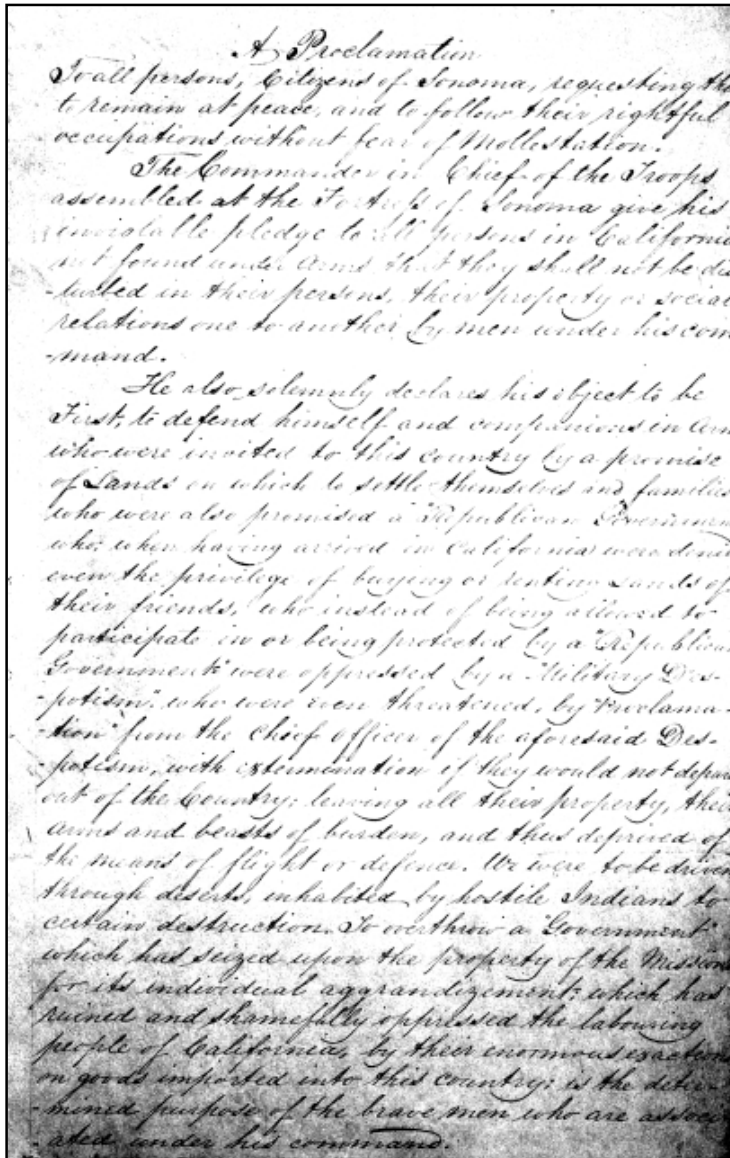 A Proclamation
To all persons, Citizens of Sonoma, requesting the
to remain at peace, and to follow their rightful
occupations without fear of Mollestation.
The Commander in Chief of the Troops
assembled at the Fortress of Sonoma give his
inviolable pledge to all persons in California
not found under Arms that they shall not be dis
-turbed in their persons, their property or social
relations one to another by men under his com
-mand.
He also solemnly declares his object to be
First, to defend himself and companions in Arm
who were invited to this country by a promise
of Lands on which to settle themselves and families
who were also promised a "Republican Governmen
who, when having arrived in California were denie
even the privilege of buying or renting Lands of
their friends, who instead of being allowed to
participate in or being protected by a "Republica
Government" were oppressed by a "Military Des-
-potism", who were even threatened, by "Proclama-
-tion" from the Chief officer of the aforesaid Des-
-potism, with extermination if they would not depar
out of the Country; leaving all their property, thei
Arms and beasts of burden, and thus deprived of
the means of flight or defence. We were to be driven
through deserts, inhabited by hostile Indians to
certain destruction. To overthrow a "Government"
which has seized upon the property of the Missions
for its individual aggrandizement; which has
ruined and shamefully oppressed the labouring
people of California, by their enormous exactions
on goods imported into this country; is the deter-
-mined purpose of the brave men who are associ
-ated under his command.